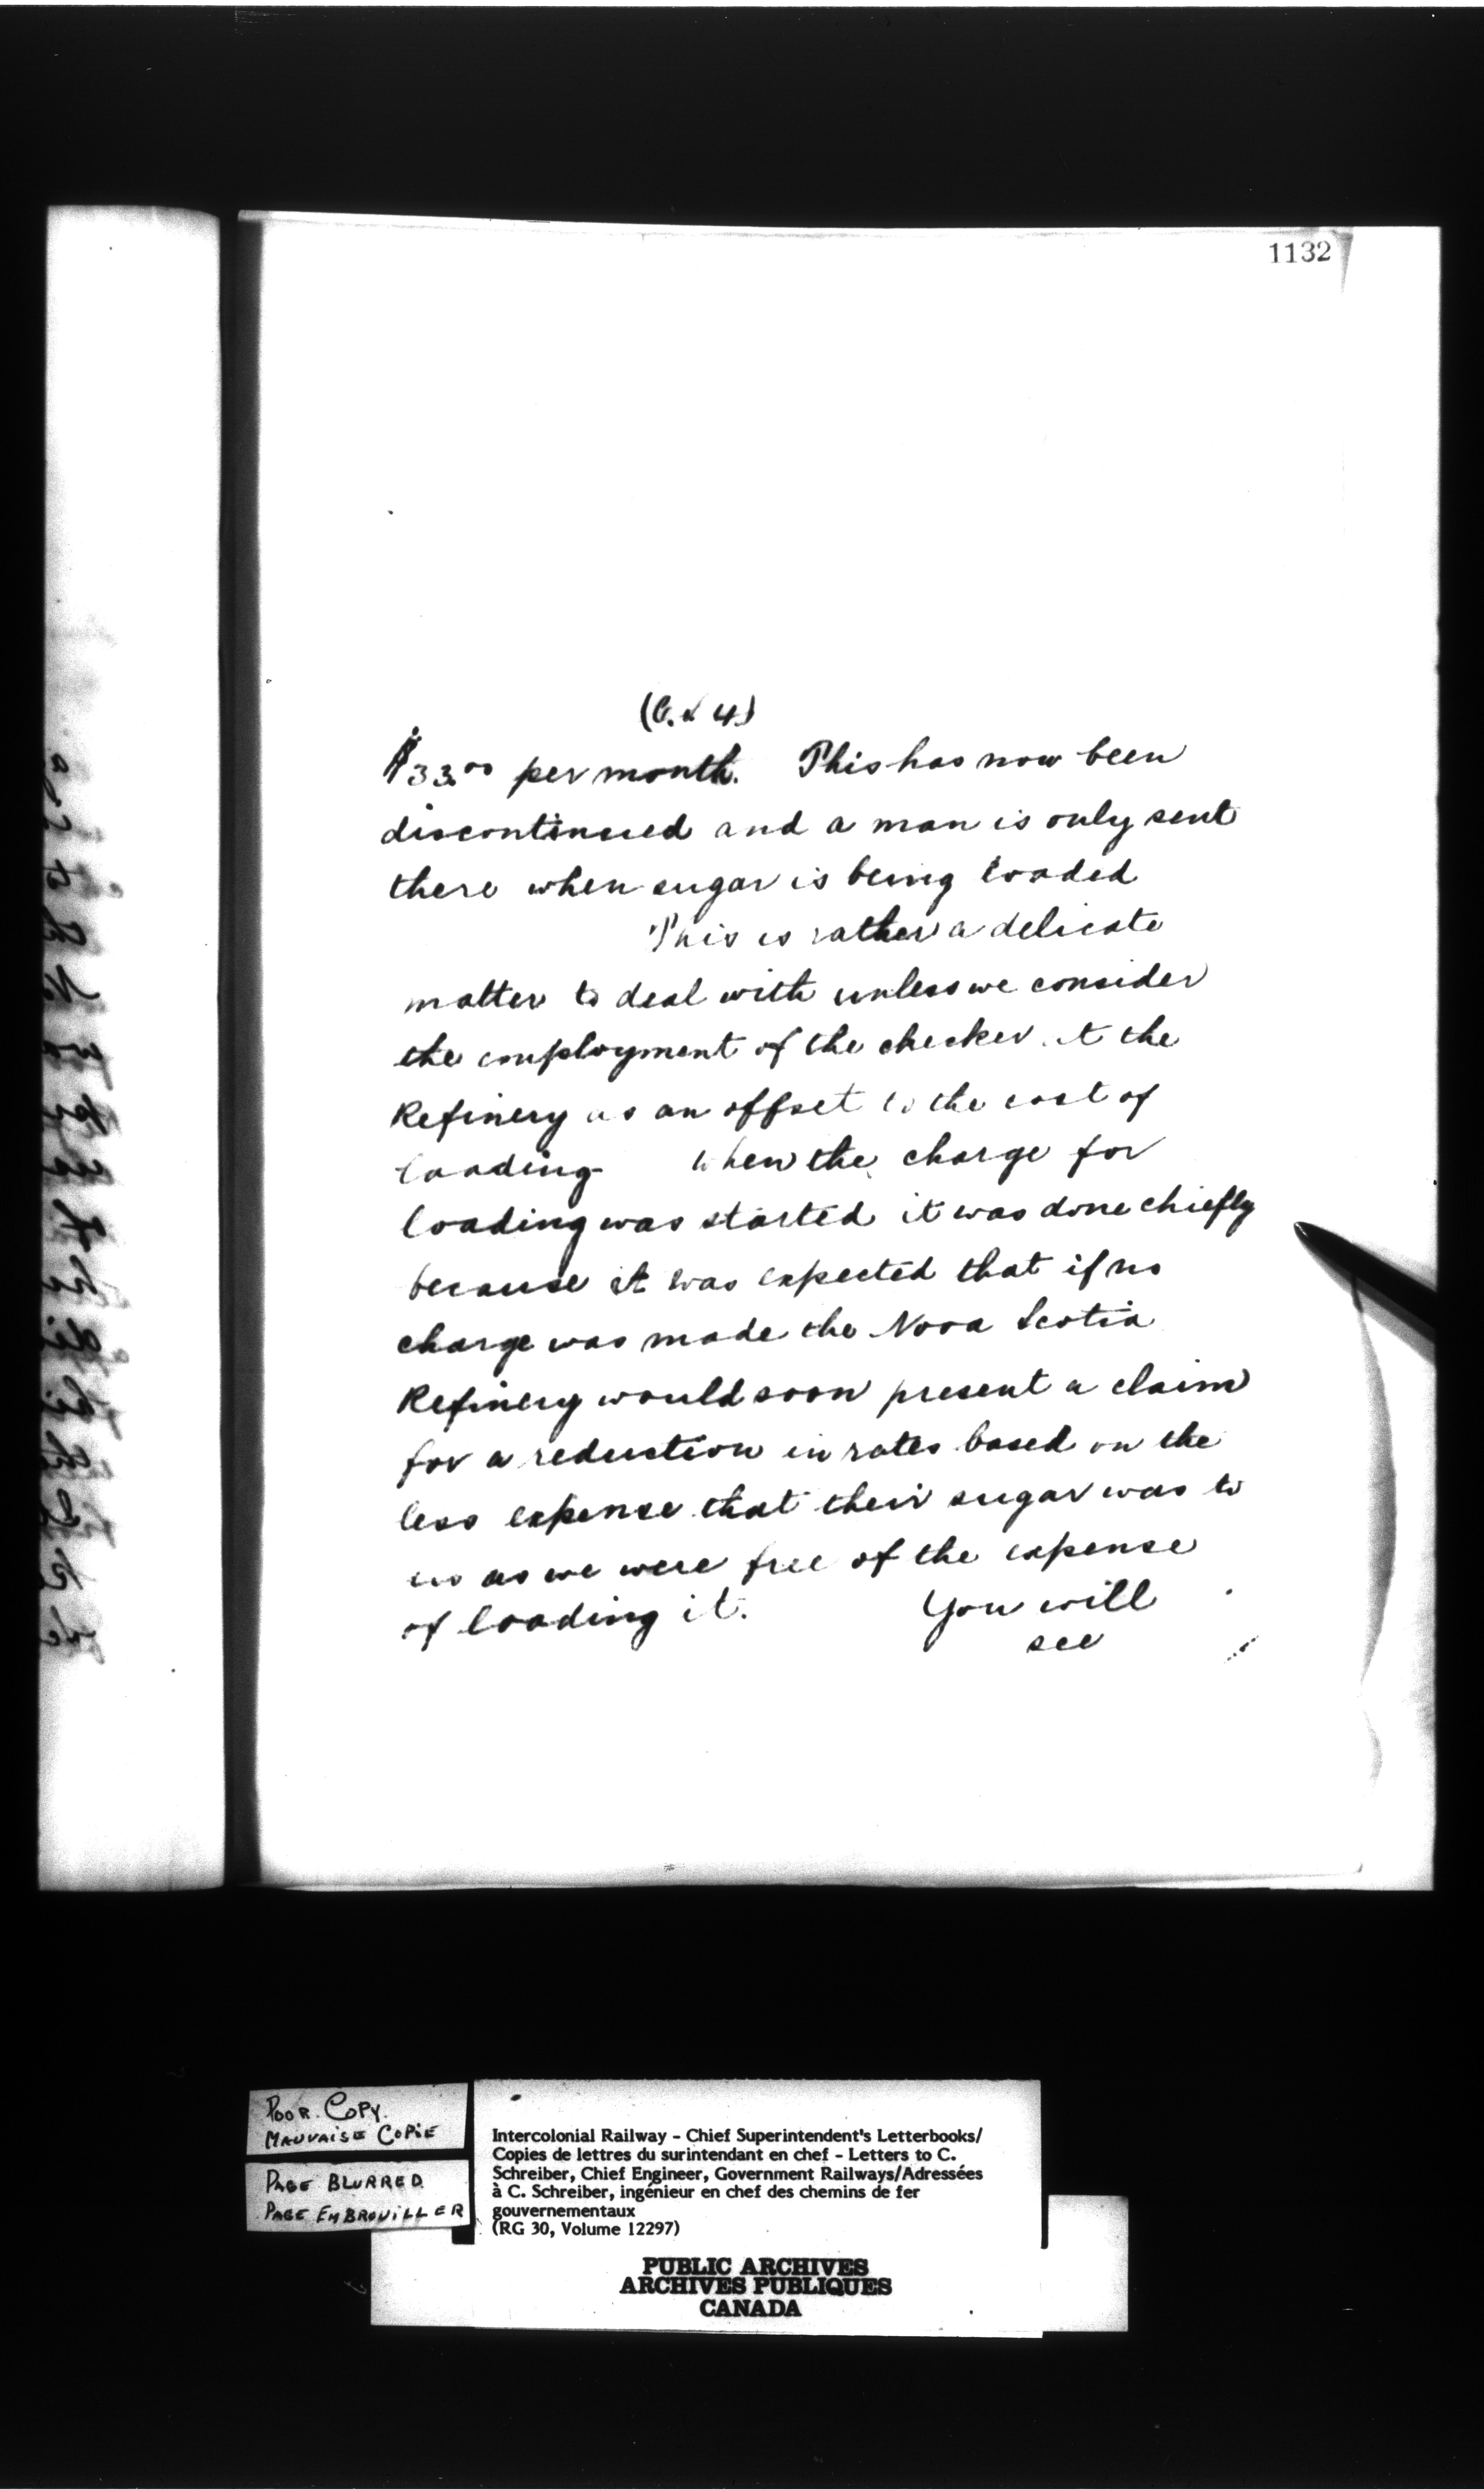 1132
(C. S 4)
$33.00 per month. This has now been
discontinued and a man is only sent
there when sugar is being loaded
This is rather a delicate
matter to deal with unless we consider
the employment of the checker at the
Refinery as an offset to the cost of
loading When the charge for
loading was started it was done chiefly
because it was expected that if no
charge was made the Nova Scotia
Refinery would soon present a claim
for a reduction in rates based on the
less expense that their sugar was to
us as we were free of the expense
of loading it. You will
see
POOR COPY.
MAUVAISE COPIE
PAGE BLURRED
PAGE EMBROUILLER
Intercolonial Railway - Chief Superintendent's Letterbooks/
Copies de lettres du surintendant en chef - Letters to C.
Schreiber, Chief Engineer, Government Railways/Adressées
à C. Schreiber, ingénieur en chef des chemins de fer
gouvernementaux
(RG 30, Volume 12297)
PUBLIC ARCHIVES
ARCHIVES PUBLIQUES
CANADA